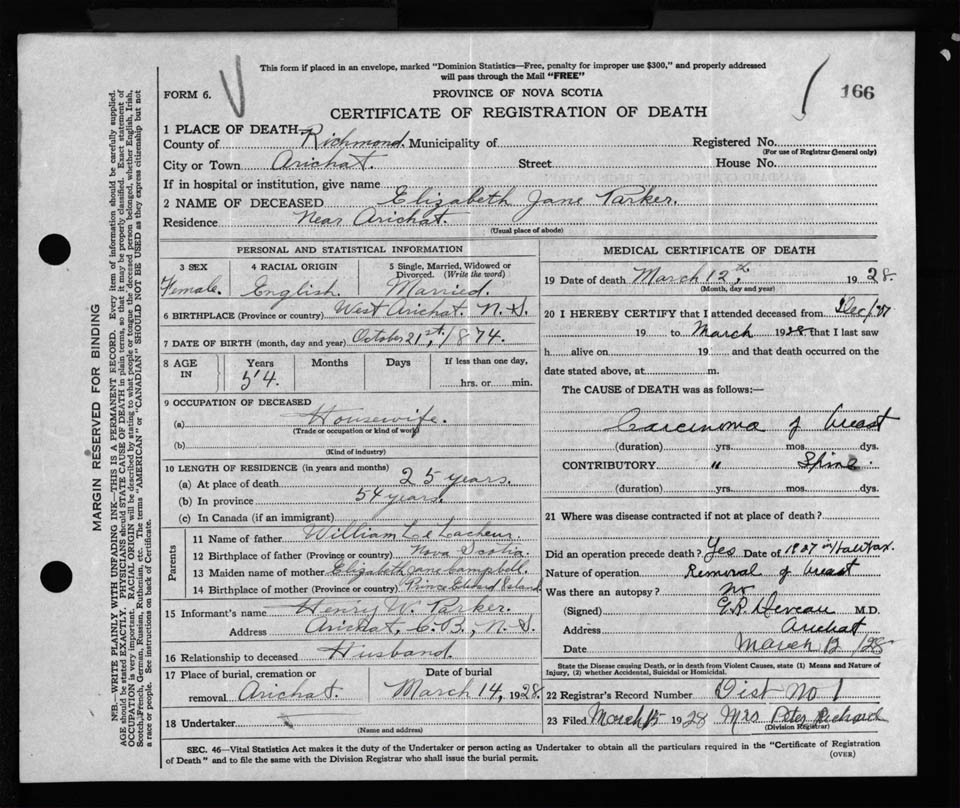 This form if placed in an envelope, marked "Dominion Statistics—Free, penalty for improper use $300," and properly addressed
will pass through the Mail "FREE"
FORM 6.
PROVINCE OF NOVA SCOTIA
166
CERTIFICATE OF REGISTRATION OF DEATH
1 PLACE OF DEATH—
County of Richmond. Municipality of Registered No.
(For use of Registrar General only)
City or Town Arichat. Street House No.
If in hospital or institution, give name
2 NAME OF DECEASED Elizabeth Jane Parker.
Residence Near Arichat.
(Usual place of abode)
PERSONAL AND STATISTICAL INFORMATION
3 SEX 4 RACIAL ORIGIN 5 Single, Married, Widowed or
Divorced. (Write the word)
Female. English. Married.
6 BIRTHPLACE (Province or country) West Arichat. N.S.
7 DATE OF BIRTH (month, day and year) October 21st, 1874.
8 AGE IN Years Months Days If less than one day,
54. hrs. or min.
9 OCCUPATION OF DECEASED
(a) Housewife.
(Trade or occupation or kind of work)
(b)
(Kind of industry)
10 LENGTH OF RESIDENCE (in years and months)
(a) At place of death 25 years.
(b) In province 54 years.
(c) In Canada (if an immigrant)
Parents
11 Name of father William Le Lacheur
12 Birthplace of father (Province or country) Nova Scotia
13 Maiden name of mother Elizabeth Jane Campbell.
14 Birthplace of mother (Province or country) Prince Edward Island
15 Informant's name Henry W. Parker.
Address Arichat, C.B., N.S.
16 Relationship to deceased Husband
17 Place of burial, cremation or Date of burial
removal Arichat. March 14, 1928
18 Undertaker
(Name and address)
MEDICAL CERTIFICATE OF DEATH
19 Date of death March 12th, 1928.
(Month, day and year)
20 I HEREBY CERTIFY that I attended deceased from Dec/27
19 to March 1928 that I last saw
h alive on 19 and that death occurred on
date stated above, at m.
The CAUSE of DEATH was as follows:—
Carcinoma of breast
(duration) yrs. mos. dys.
CONTRIBUTORY " Spine.
(duration) yrs. mos. dys.
21 Where was disease contracted if not at place of death?
Did an operation precede death? Yes Date of 1927 in Halifax.
Nature of operation Removal of breast
Was there an autopsy? No
(Signed) Deveau M.D.
Address Arichat
Date March 12 1928
State the Disease causing Death, or in death from Violent Causes, state (1) Means and Nature of
Injury, (2) whether Accidental, Suicidal or Homicidal.
22 Registrar's Record Number Dist No 1
23 Filed March 15 1928 Mrs Peter Richard
(Division Registrar)
SEC. 46—Vital Statistics Act makes it the duty of the Undertaker or person acting as Undertaker to obtain all the particulars required in the "Certificate of Registration
of Death" and to file the same with the Division Registrar who shall issue the burial permit.
(OVER)
MARGIN RESERVED FOR BINDING
N.B.—WRITE PLAINLY WITH UNFADING INK—THIS IS A PERMANENT RECORD. Every item of information should be carefully supplied.
AGE should be stated EXACTLY. PHYSICIANS should STATE CAUSE OF DEATH in plain terms, so that it may be properly classified. Exact statement of
OCCUPATION is very important. RACIAL ORIGIN will be described by stating to what people or tongue the deceased person belonged, whether English, Irish,
Scotch, French, German, Russian, Ruthenian, etc. The terms "AMERICAN" or "CANADIAN" SHOULD NOT BE USED as they express citizenship but not
a race or people. See instructions on back of Certificate.